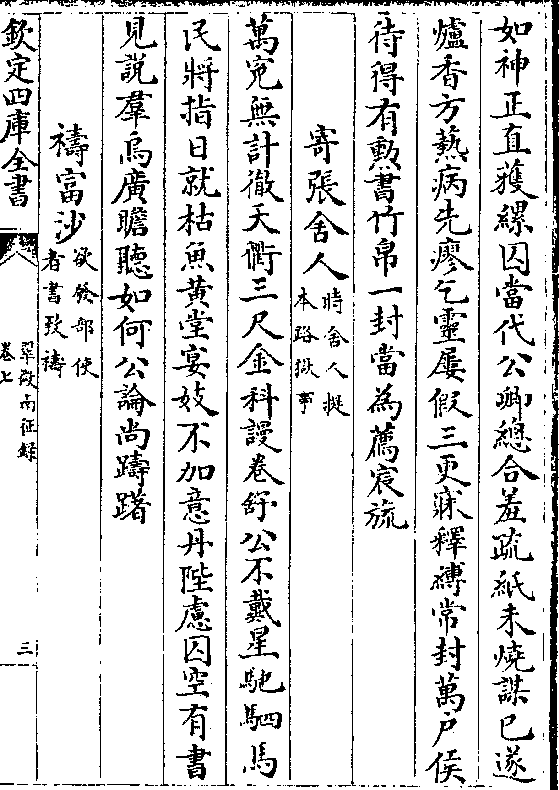 如神正直獲縲囚當代公卿總合羞疏紙未燒謀已遂
爐香方爇病先瘳乞靈屢假三更寐釋縛常封萬戶侯
待得有勲書竹帛一封當為薦宸旒
寄張舍人
時舍人擬
本路獄事
萬寃無計徹天衢三尺金科謾卷舒公不戴星馳駟馬
民將指日就枯魚黄堂宴妓不加意丹陛慮囚空有書
見說羣烏廣瞻聽如何公論尚躊躇
禱富沙
欲發部使
者書致禱
欽定四庫全書
翠微南征録
卷七
三